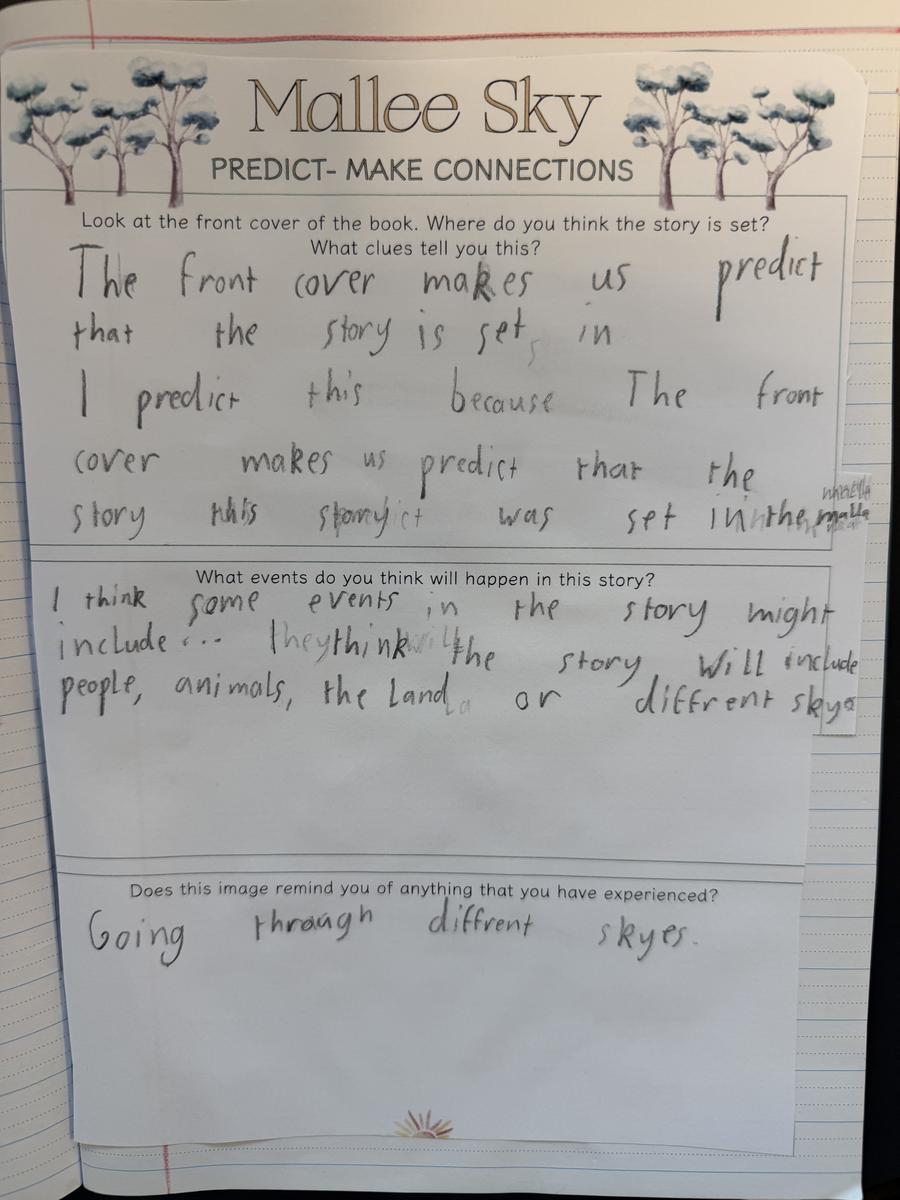 Mallee Sky
PREDICT- MAKE CONNECTIONS
Look at the front cover of the book. Where do you think the story is set?
What clues tell you this?
The front cover makes us predict
that the story is set in
I predict this because The front
cover makes us predict that the
story this story was set in the
What events do you think will happen in this story?
I think some events in the story might
include... they think the story will include
people, animals, the land or diffrent skys
Does this image remind you of anything that you have experienced?
Going through diffrent skyes.